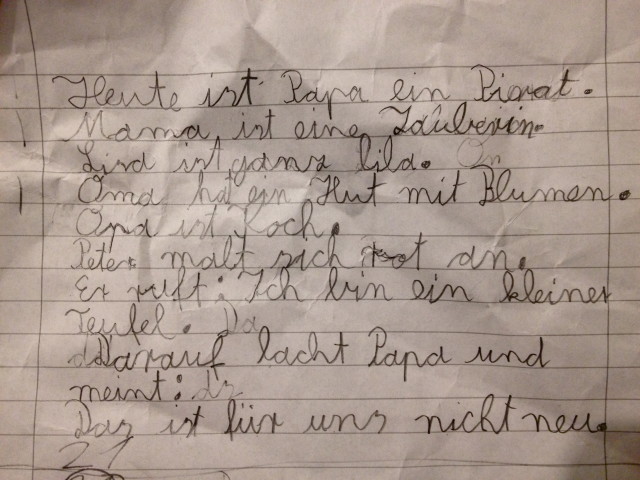 Heute ist Papa ein Pirat.
Mama ist eine Zauberin.
Lisa ist ganz lila. On
Oma hat ein Hut mit Blumen.
Opa ist Koch.
Peter malt sich rot an.
Er ruft: Ich bin ein kleiner
Teufel. Da
Darauf lacht Papa und
meint:
Das ist für uns nicht neu.
21